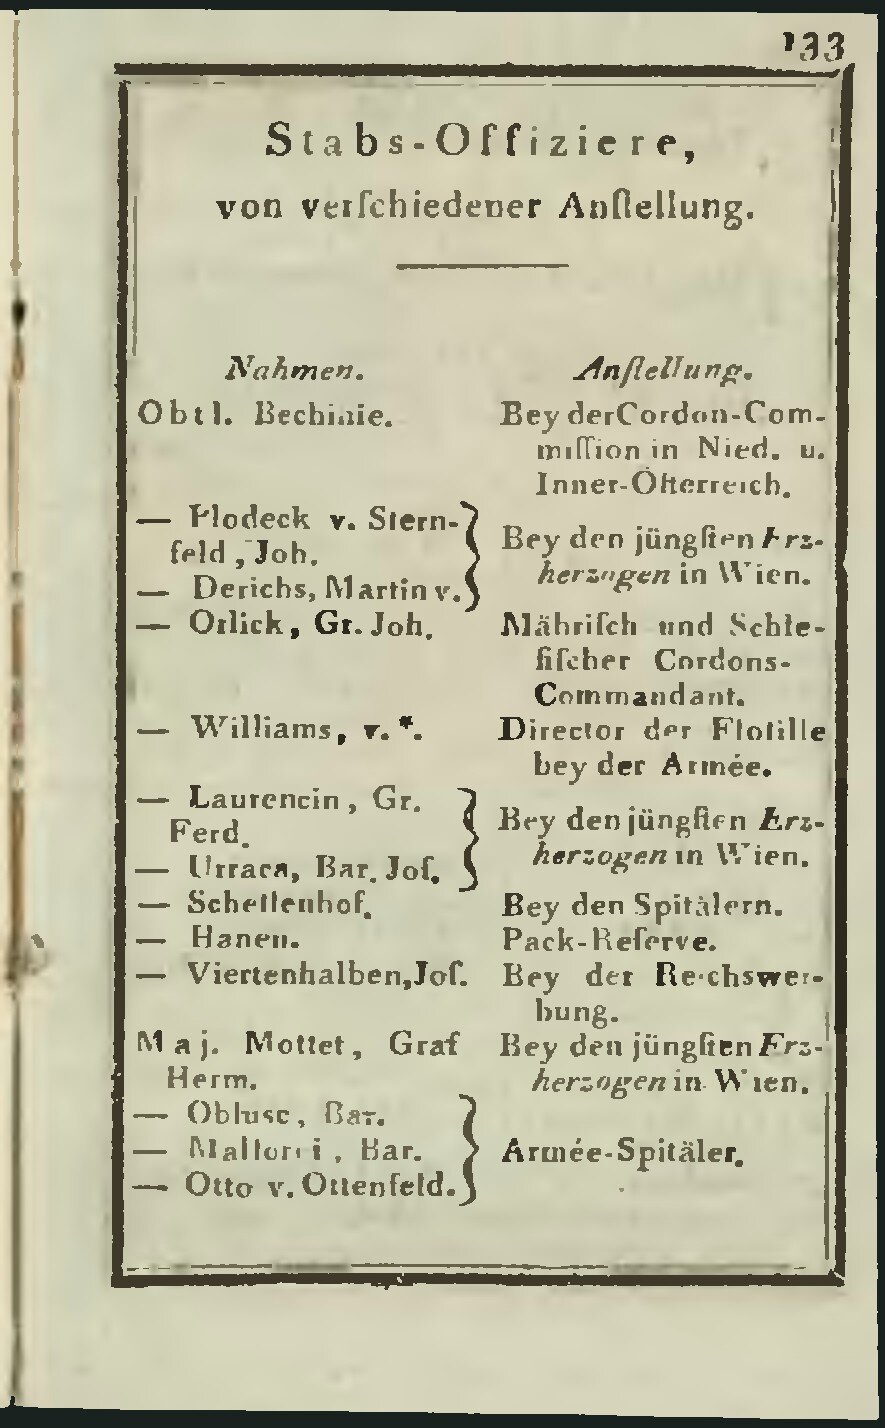 133
Stabs-Offiziere,
von verſchiedener Anſtellung.
Nahmen. Anſtellung.
Obtl. Bechinie. Bey der Cordon-Com-
miſſion in Nied. u.
Inner-Öſterreich.
— Hlodeck v. Stern-
feld, Joh.
— Derichs, Martin v.
Bey den jüngſten Erz-
herzogen in Wien.
— Orlick, Gr. Joh. Mähriſch und Schle-
ſiſcher Cordons-
Commandant.
— Williams, v. *. Director der Flotille
bey der Armée.
— Laurencin, Gr.
Ferd.
— Urraca, Bar. Joſ.
Bey den jüngſten Erz-
herzogen in Wien.
— Schellenhof. Bey den Spitälern.
— Hanen. Pack-Reſerve.
— Viertenhalben, Joſ. Bey der Reichswer-
bung.
Maj. Mottet, Graf
Herm.
Bey den jüngſten Erz-
herzogen in Wien.
— Bar.
— Bar.
— Otto v. Ottenfeld.
Armée-Spitäler.